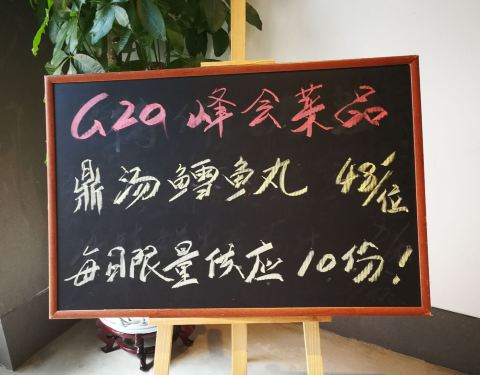 G20峰会菜品
鼎汤鳕鱼丸 48/位
每日限量供应10份!